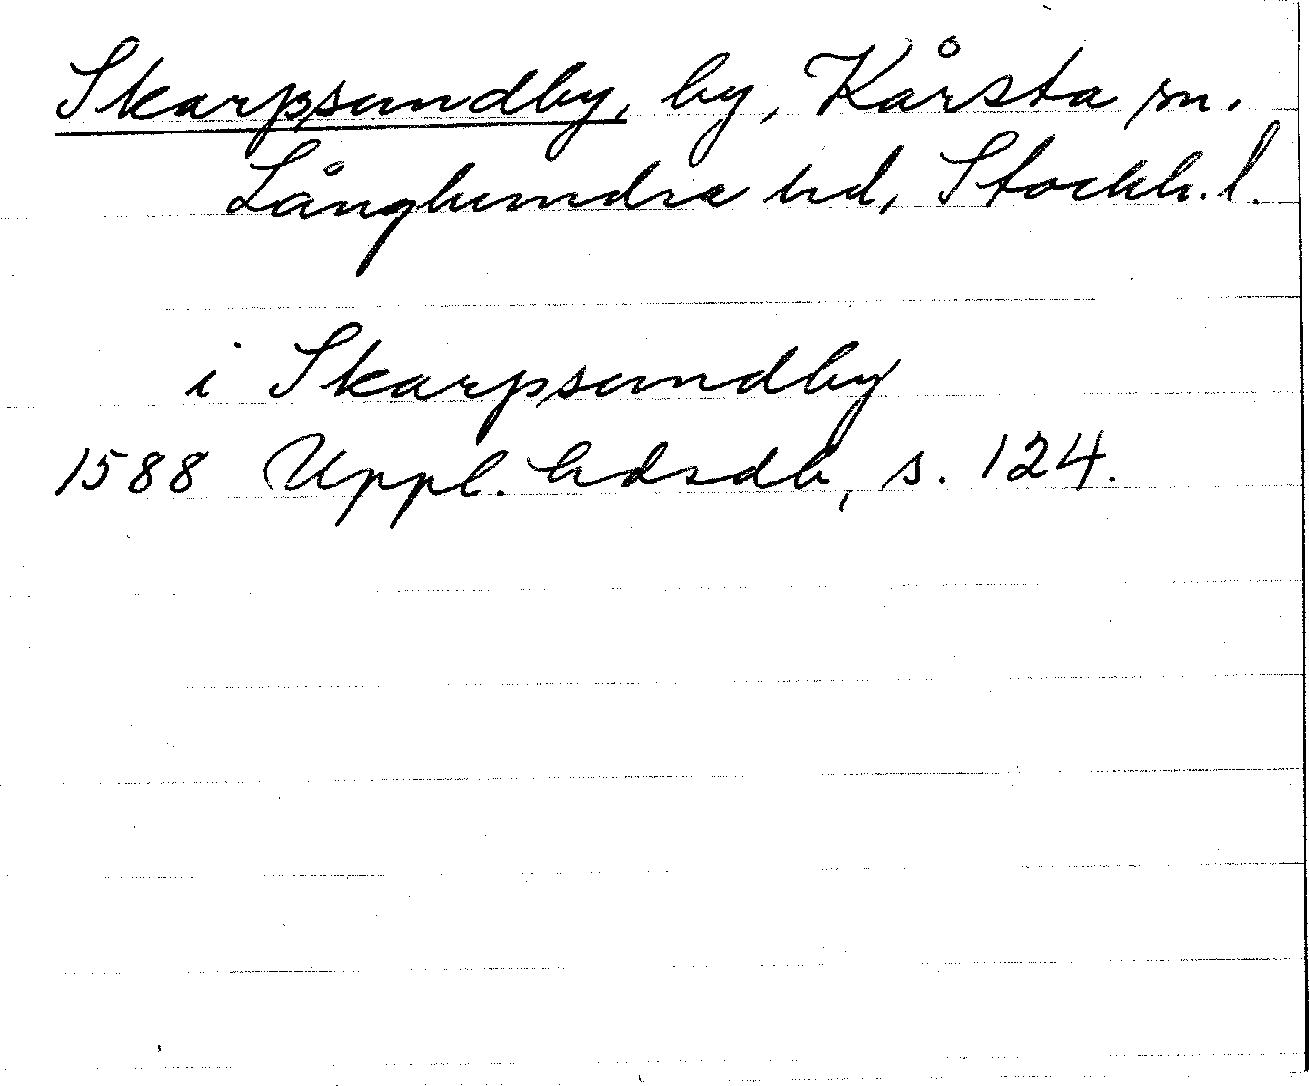 Skarpsundby, by, Kårsta sn.
Långhundra hd, Stockh. l.
i Skarpsundby
1588 Uppl. hdsdb, s. 124.